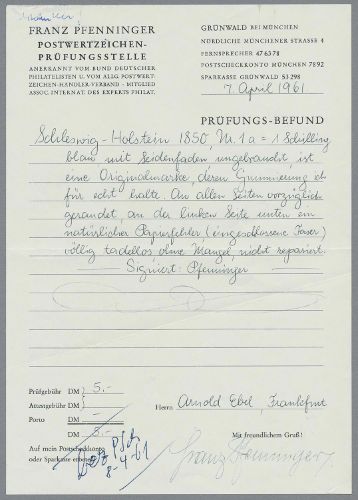 FRANZ PFENNINGER
POSTWERTZEICHEN-
PRÜFUNGSSTELLE
ANERKANNT VOM BUND DEUTSCHER
PHILATELISTEN U. VOM ALLG. POSTWERT-
ZEICHEN-HÄNDLER-VERBAND - MITGLIED
ASSOC. INTERNAT. DES EXPERTS PHILAT.
GRÜNWALD BEI MÜNCHEN
NÖRDLICHE MÜNCHENER STRASSE 4
FERNSPRECHER 47 63 78
POSTSCHECKKONTO MÜNCHEN 7892
SPARKASSE GRÜNWALD 53 298
7. April 1961
PRÜFUNGS-BEFUND
Schleswig-Holstein 1850 Nr. 1a = 1 Schilling
blau mit Seidenfaden ungebraucht, ist
eine Originalmarke, deren Gummierung ich
für echt halte. An allen Seiten vorzüglich
gerandet, an der linken Seite unten ein
natürlicher Papierfehler (eingeschlossene Faser)
völlig tadellos ohne Mangel nicht repariert.
Signiert: Pfenninger
Prüfgebühr DM 5.-
Attestgebühr DM
Porto DM
DM 5.-
Herrn Arnold Ebel, Frankfurt
Auf mein Postscheckkonto
oder Sparkasse erbeten
8-4-61
Mit freundlichem Gruß!
Franz Pfenninger